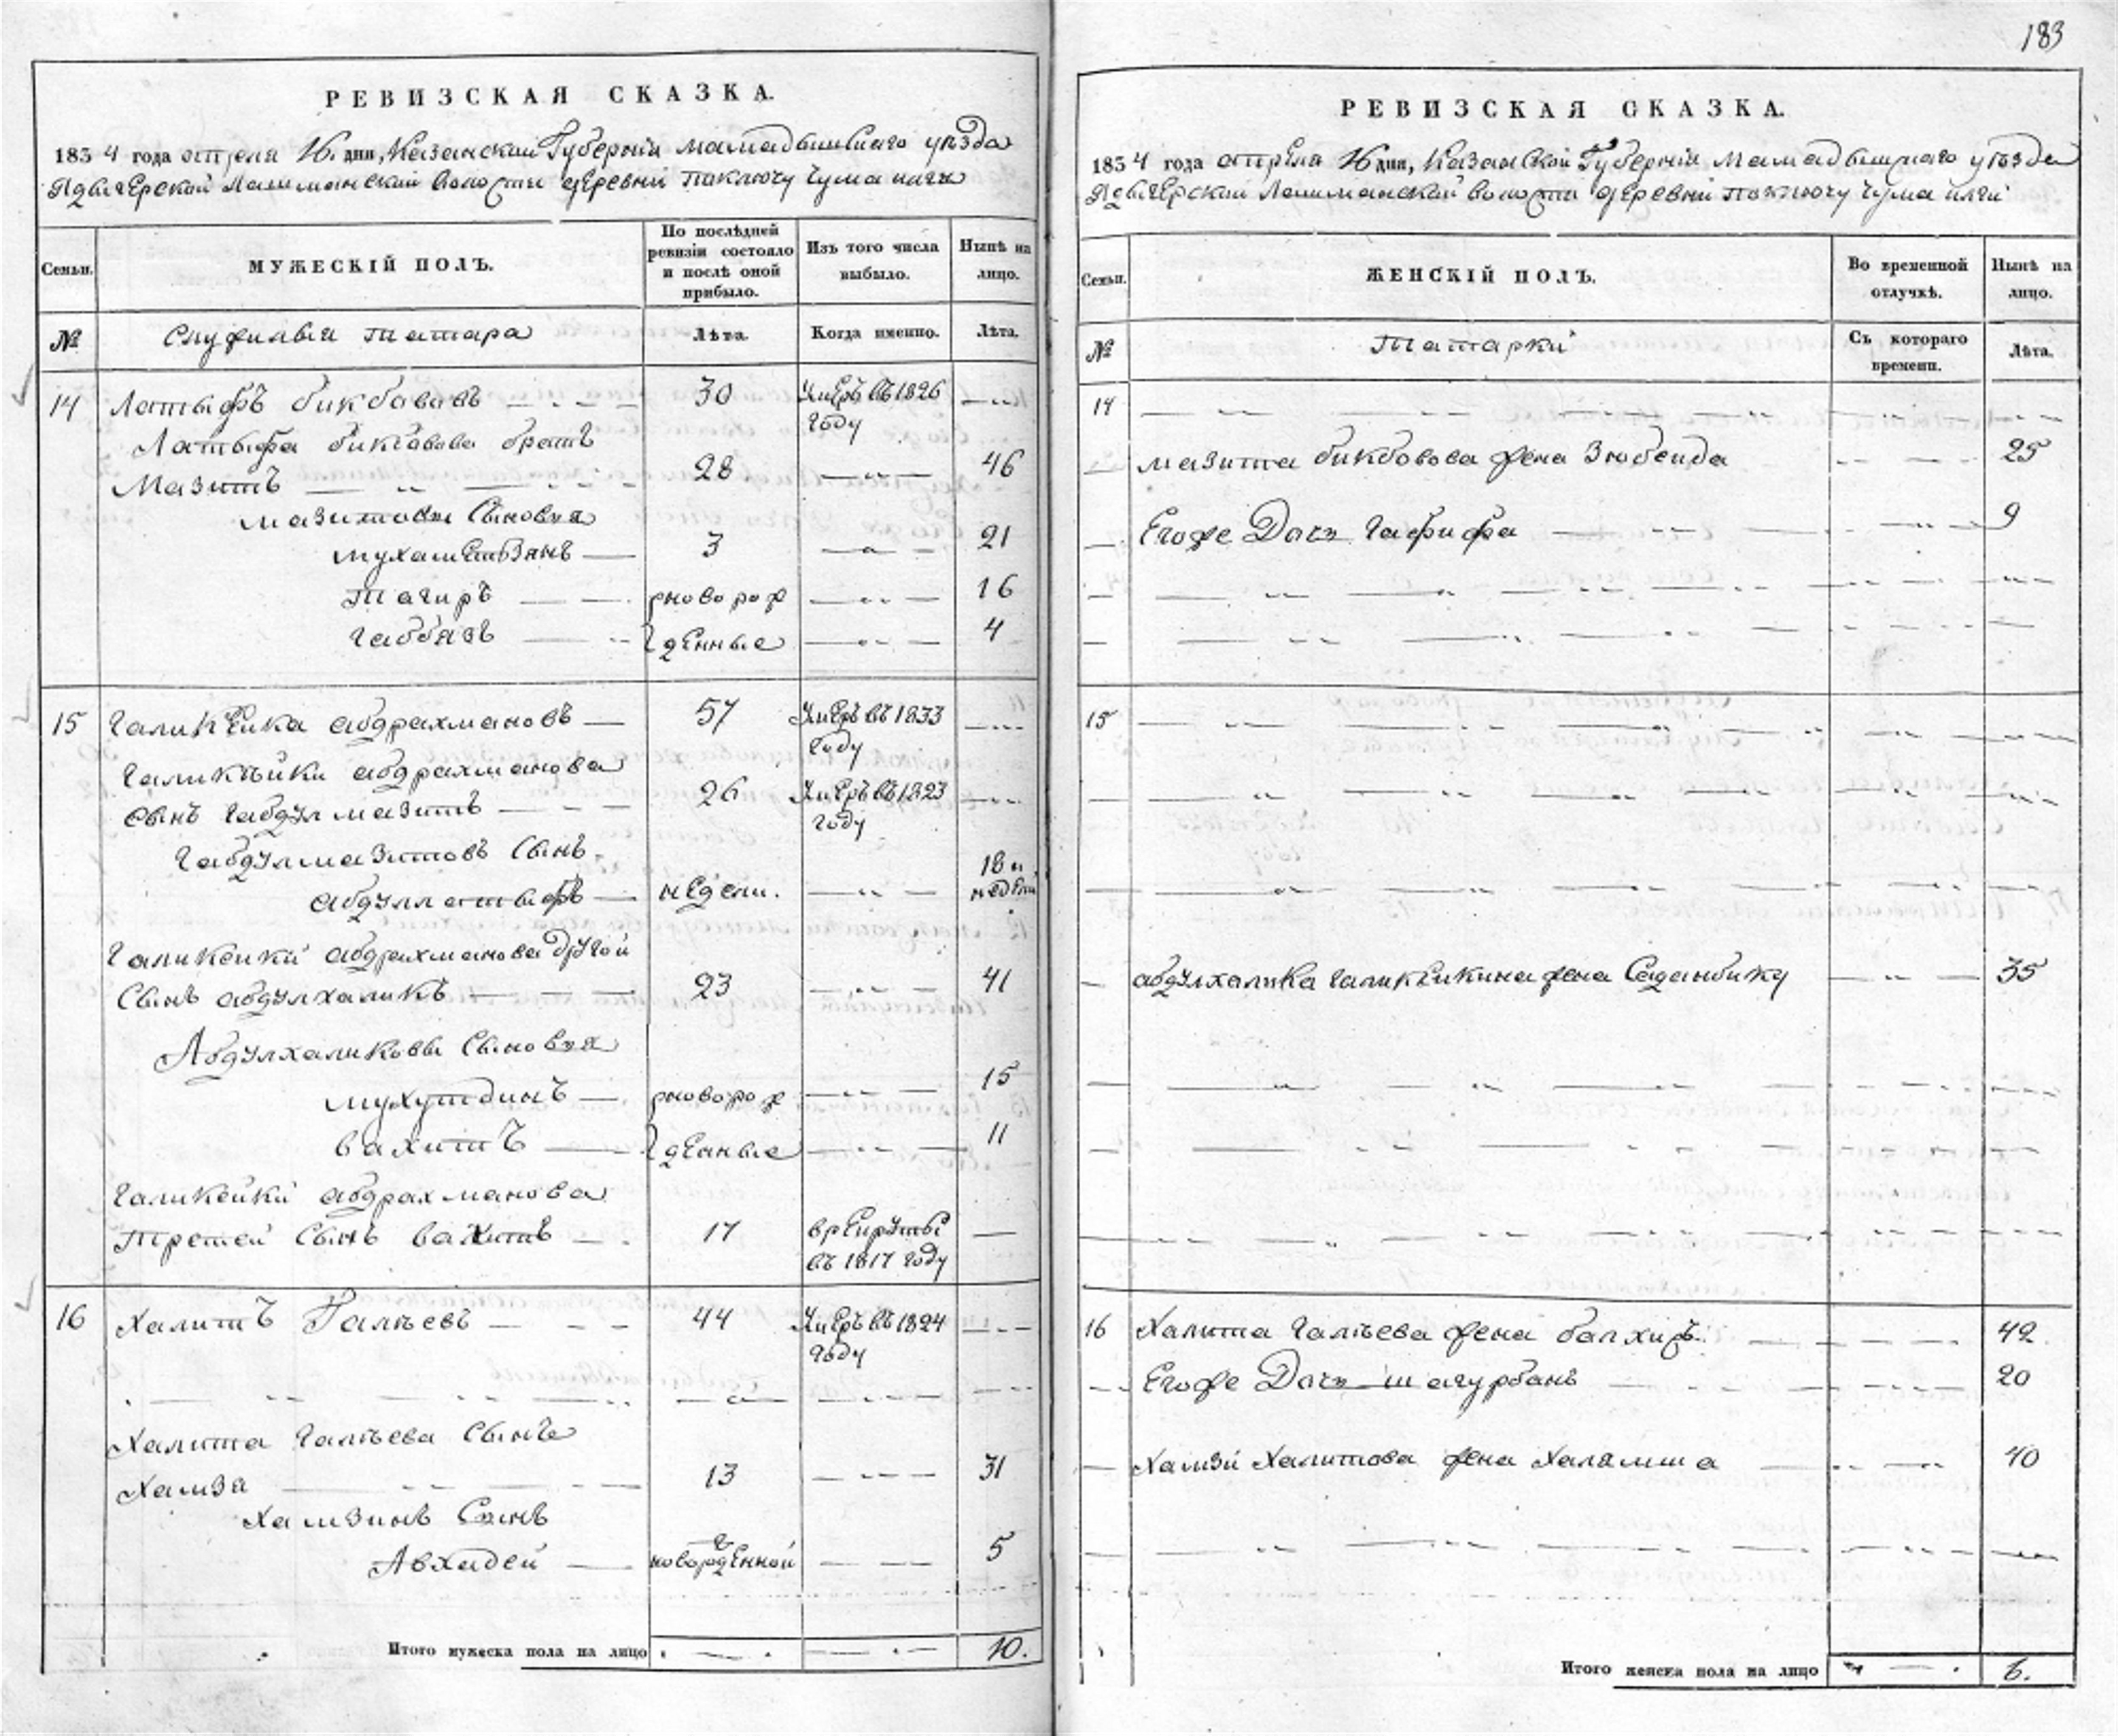 183
РЕВИЗСКАЯ СКАЗКА.
1834 года апреля 16 дни, Казанской Губернiи мамадышскаго уѣзда
Лашманской волости деревни поключу Чума
Семьи. МУЖЕСКІЙ ПОЛЪ. По послѣдней ревизіи состояло и послѣ оной прибыло. Изъ того числа выбыло. Нынѣ на лицо.
№ татара Лѣта. Когда именно. Лѣта.
14 Латыфъ бикбововъ 30 Умеръ въ 1826
году
Латыфа бикбовова братъ
Мазитъ 28 46
мазитовы Сыновья
мухаметзянъ 3 21
Тагиръ новорож 16
Габбязъ денные 4
15 Галикейка абдрахмановъ 57 Умеръ въ 1833
году
Галикѣйки абдрахманова
сынъ Габдулмазитъ 26 Умеръ въ 1823
году
Габдулмазитовъ Сынъ 18 и
абдуллатыфъ недели. недѣли
Галикейки абдрахманова другой
Сынъ абдулхаликъ 23 41
Абдулхаликовы Сыновья
мухутдинъ новорож 15
вахитъ денные 11
Галикейки абдрахманова
Третей Сынъ вахитъ 17 врекруты
въ 1817 году
16 Халитъ Галѣевъ 44 Умеръ въ 1824
году
Халита Галѣева Сынъ
Хамза 13 31
Хамзинъ Сынъ
Авхадей новорожденной 5
Итого мужеска пола на лицо 10.
РЕВИЗСКАЯ СКАЗКА.
1834 года апреля 16 дни, Казанской Губернiи, Мамадышскаго уѣзда
Лашманской волости деревни поключу Чума
Семьи. ЖЕНСКІЙ ПОЛЪ. Во временной отлучкѣ. Нынѣ на лицо.
№ Татарки Съ котораго времени. Лѣта.
14
мазита бикбовова жена Зюбейда 25
Егоже Дочь Гафифа 9
15
абдулхалика Галикейкина жена Сеганбику 35
16 Халита Галѣева жена балхиръ 42
Егоже Дочь шагурбанъ 20
Хамзи Халитова жена Халямша 40
Итого женска пола на лицо 6.